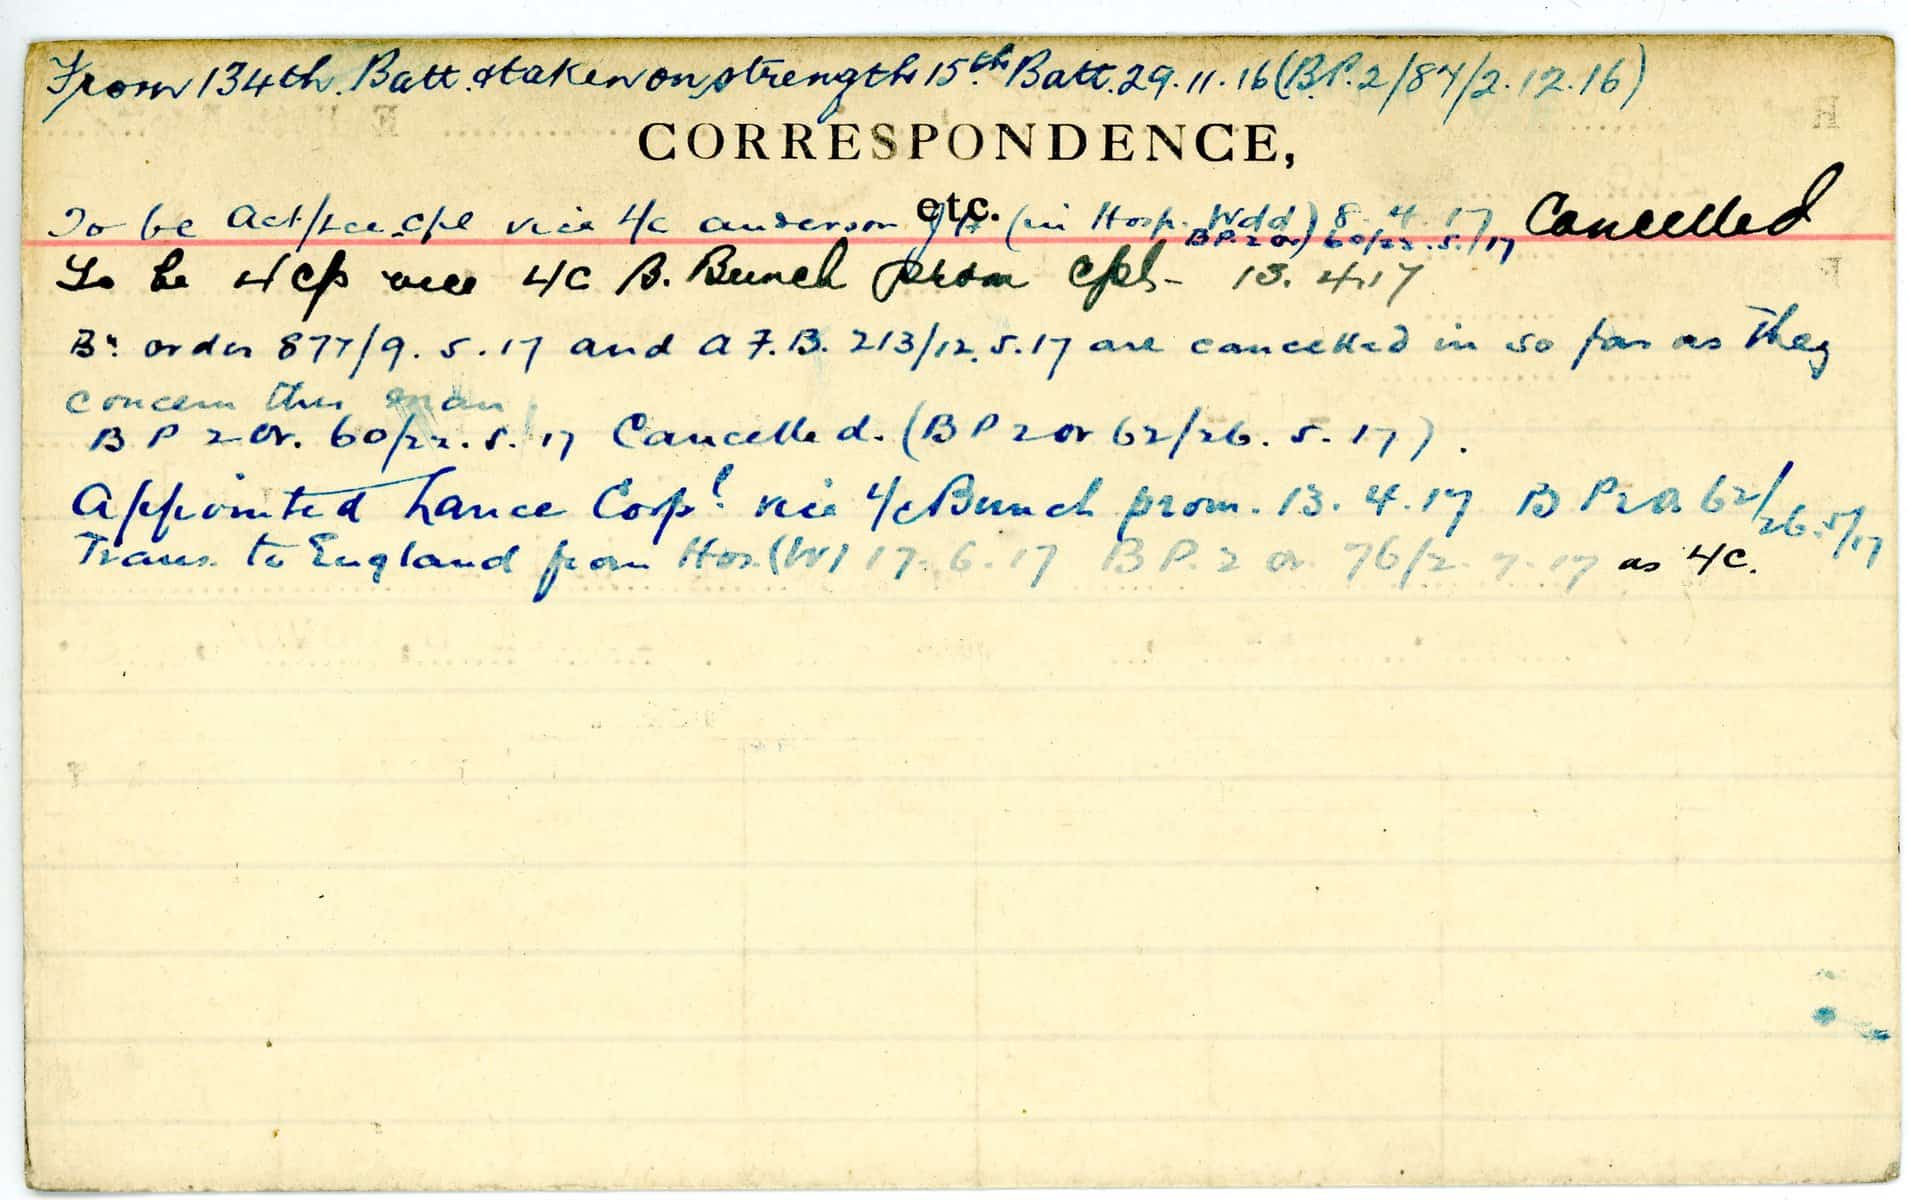 From 134th. Batt. & taken on strength 15th Batt. 29.11.16 (B.P.2/84/2.12.16)
CORRESPONDENCE, etc.
To be Act/Lce.Cpl vice L/c Anderson (in Hosp. Wdd) 8.4.17 Cancelled
B.P.2 Or) 60/22.5./17
To be L/Cp vice L/C B. Bunch prom Cpl- 13.4.17
Bn order 877/9.5.17 and A F.B. 213/12.5.17 are cancelled in so far as they
concern this man
B P 2 Or. 60/22.5.17 Cancelled. (B P 2 Or 62/26.5.17).
Appointed Lance Corpl vice L/c Bunch prom. 13.4.17 B P 2 Or 62/26.5/17
Trans. to England from Hos. (W) 17.6.17 B P. 2 or 76/2.7.17 as L/C.